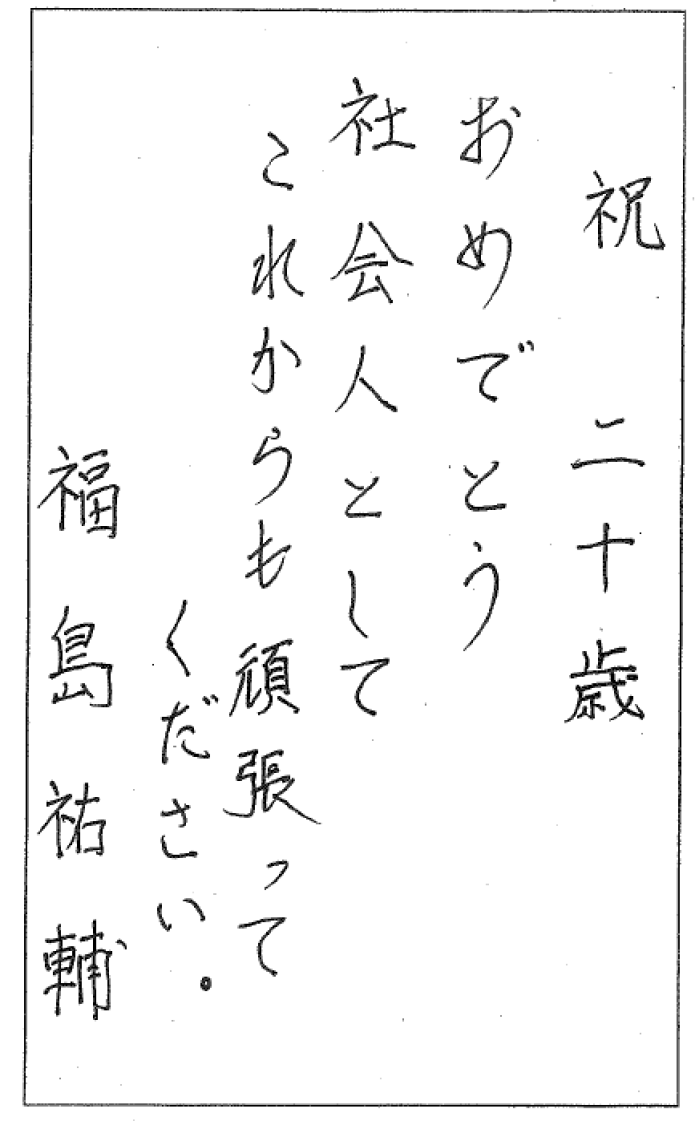 祝 二十歳
おめでとう
社会人として
これからも頑張って
ください。
福島祐輔